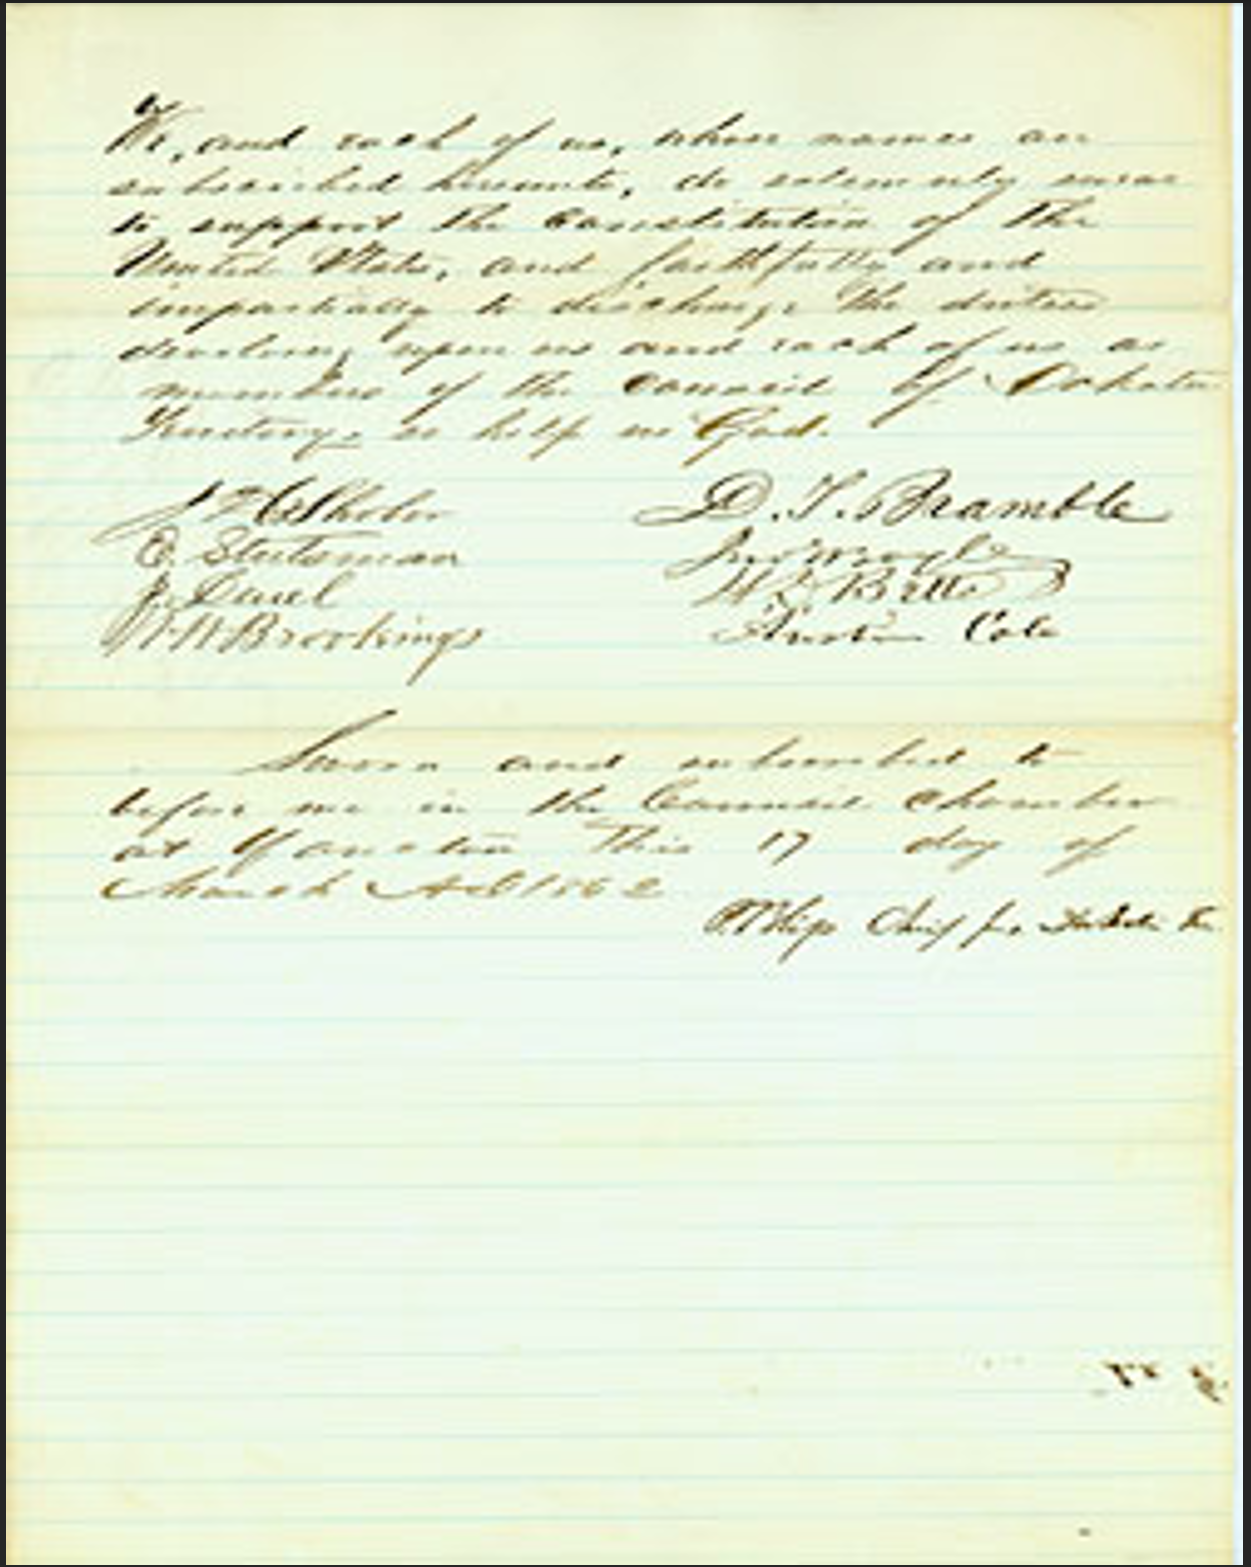 We, and each of us, whose names are
subscribed hereunto, do solemnly swear
to support the Constitution of the
United States, and faithfully and
impartially to discharge the duties
devolving upon us and each of us as
members of the Council of Dakota
Territory, so help us God.
J H Shober
E. Stutsman
J. Deuel
W W Brookings
D. T. Bramble
H D Betts
Austin Cole
Sworn and subscribed to
before me in the Council Chamber
at Yancton this 17 day of
March AD 1862
P Bliss Chief Jus. Dakota Ter.